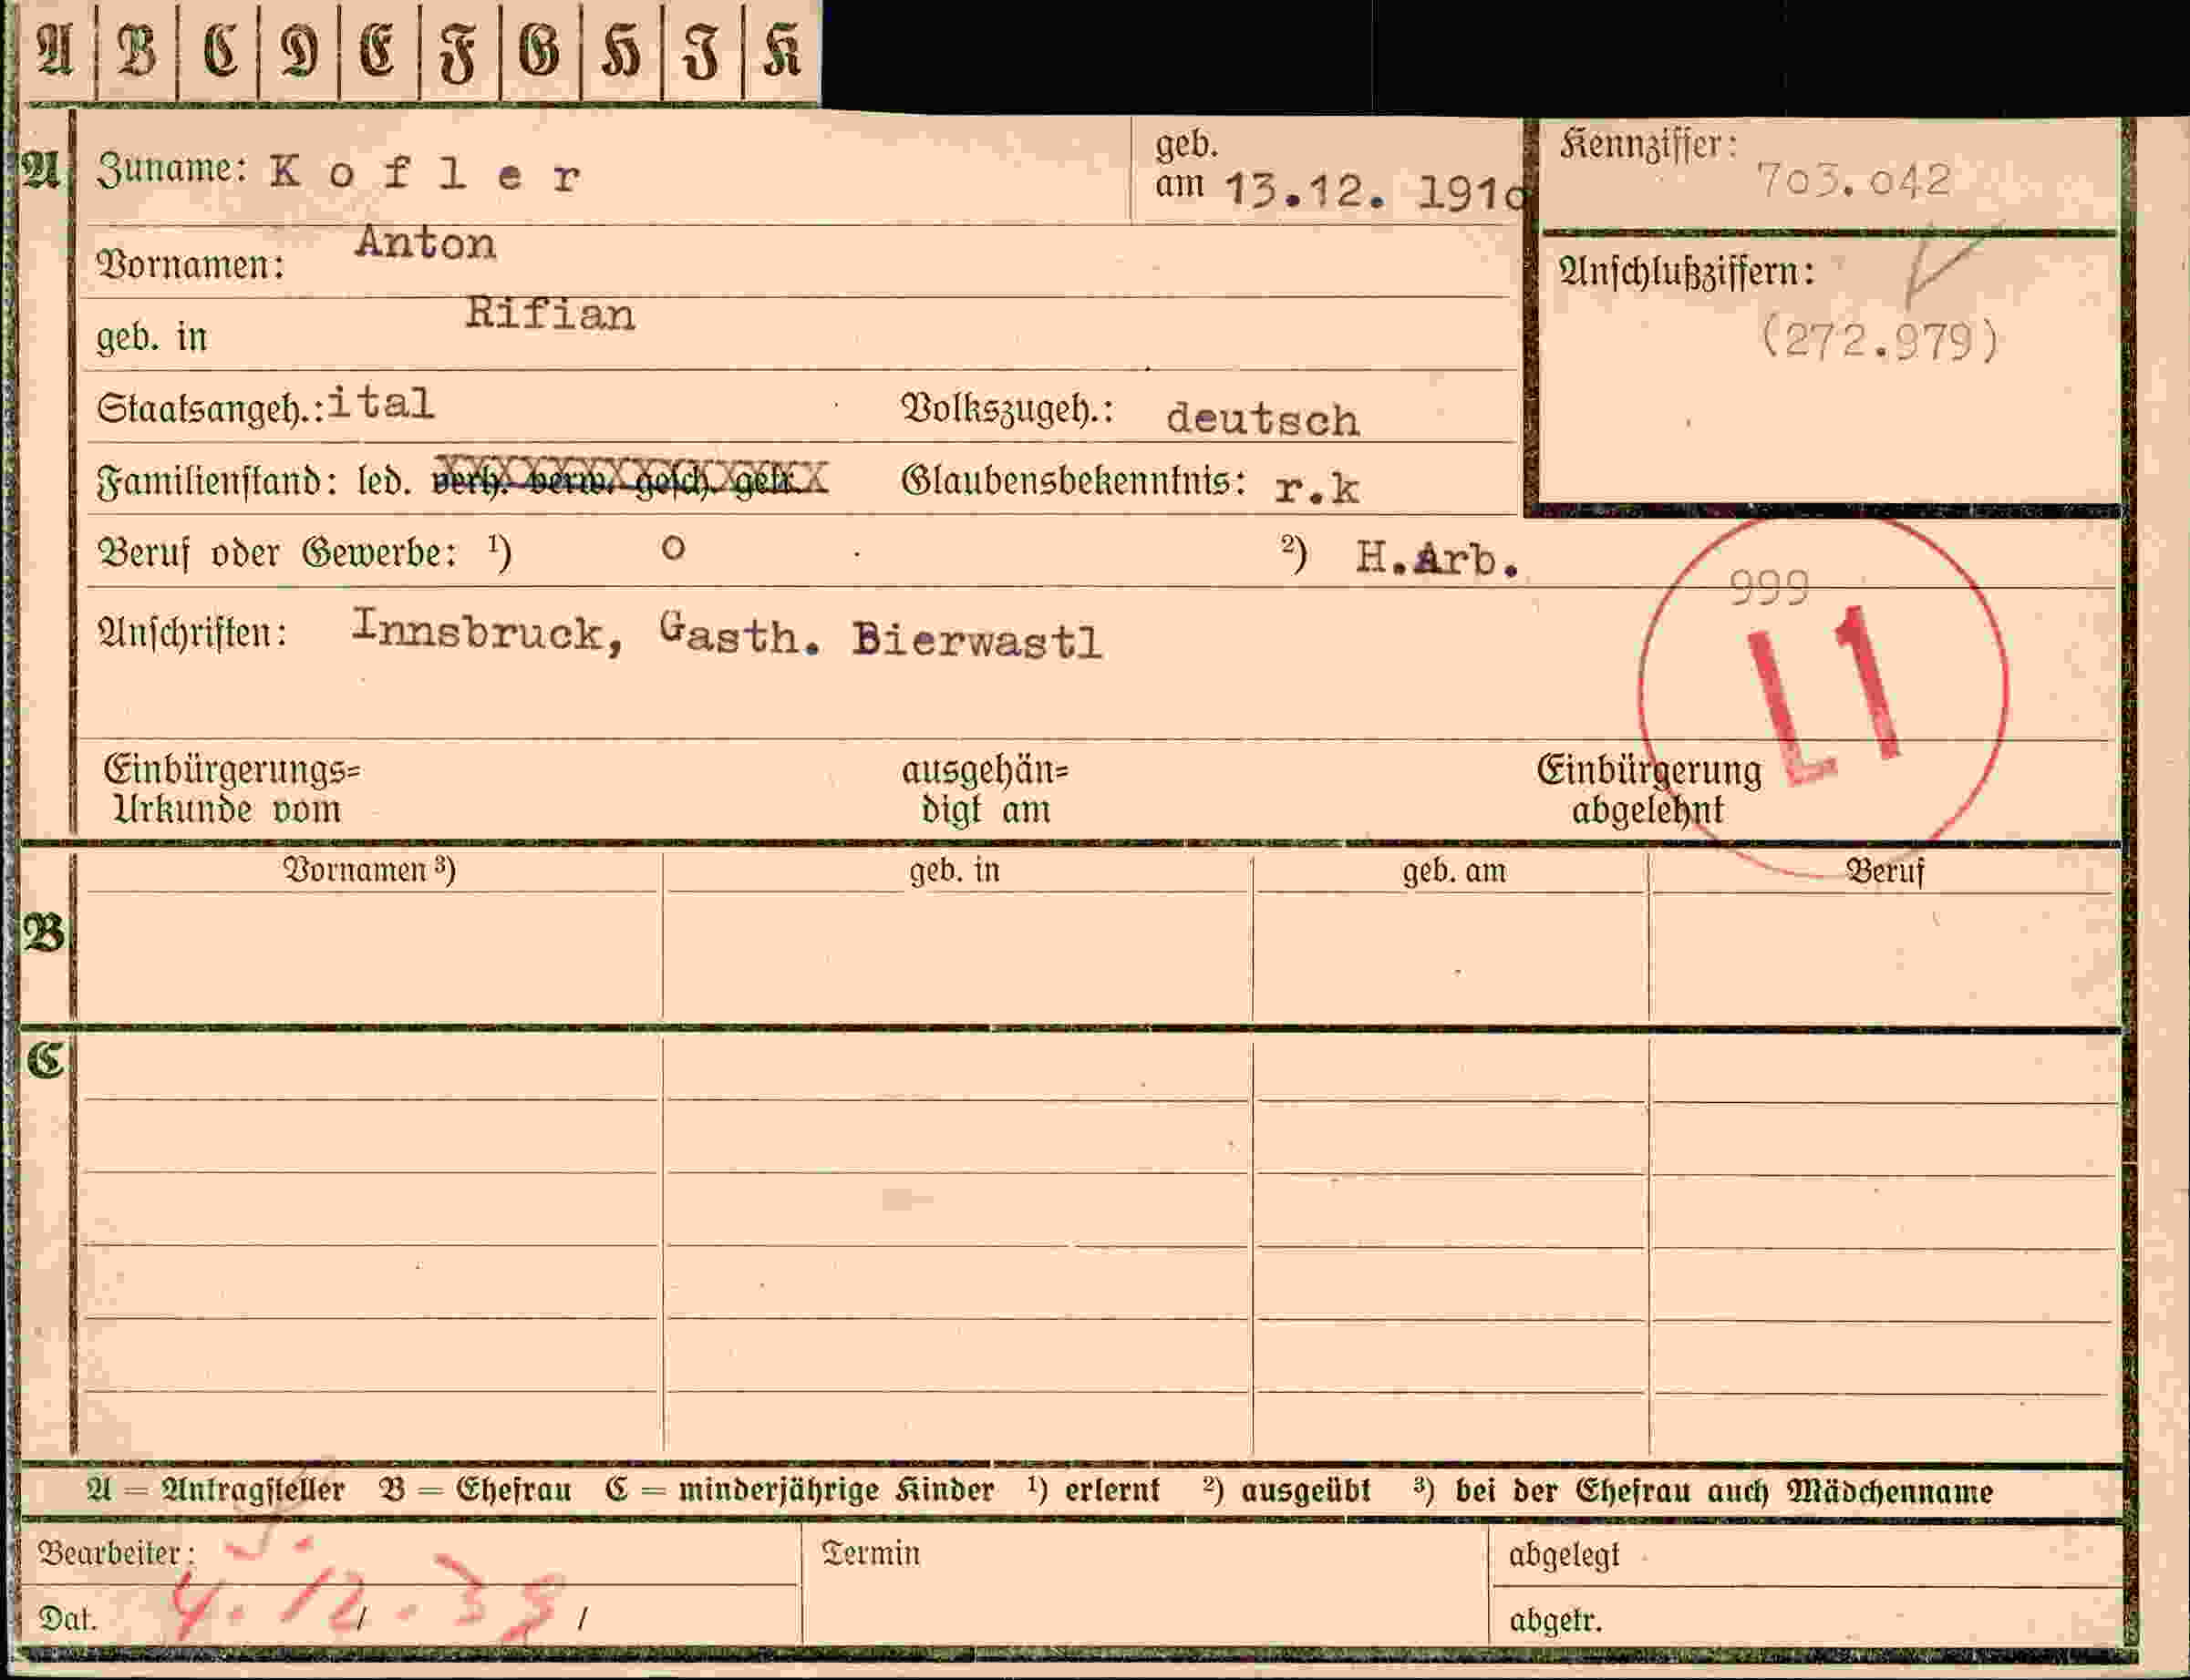 A B C D E F G H I K
A Zuname: K o f l e r geb. am 13.12. 191o Kennziffer: 7o3.o42
Vornamen: Anton
Anschlußziffern: (272.979)
geb. in Rifian
Staatsangeh.: ital Volkszugeh.: deutsch
Familienstand: led. verh. verw. gesch. getr. Glaubensbekenntnis: r.k
Beruf oder Gewerbe: ¹) o ²) H.Arb.
999
Anschriften: Innsbruck, Gasth. Bierwastl
L1
Einbürgerungs= ausgehän= Einbürgerung
Urkunde vom digt am abgelehnt
Vornamen ³) geb. in geb. am Beruf
B
C
A = Antragsteller B = Ehefrau C = minderjährige Kinder ¹) erlernt ²) ausgeübt ³) bei der Ehefrau auch Mädchenname
Bearbeiter: Termin abgelegt
Dat. 4.12.39 / / abgetr.